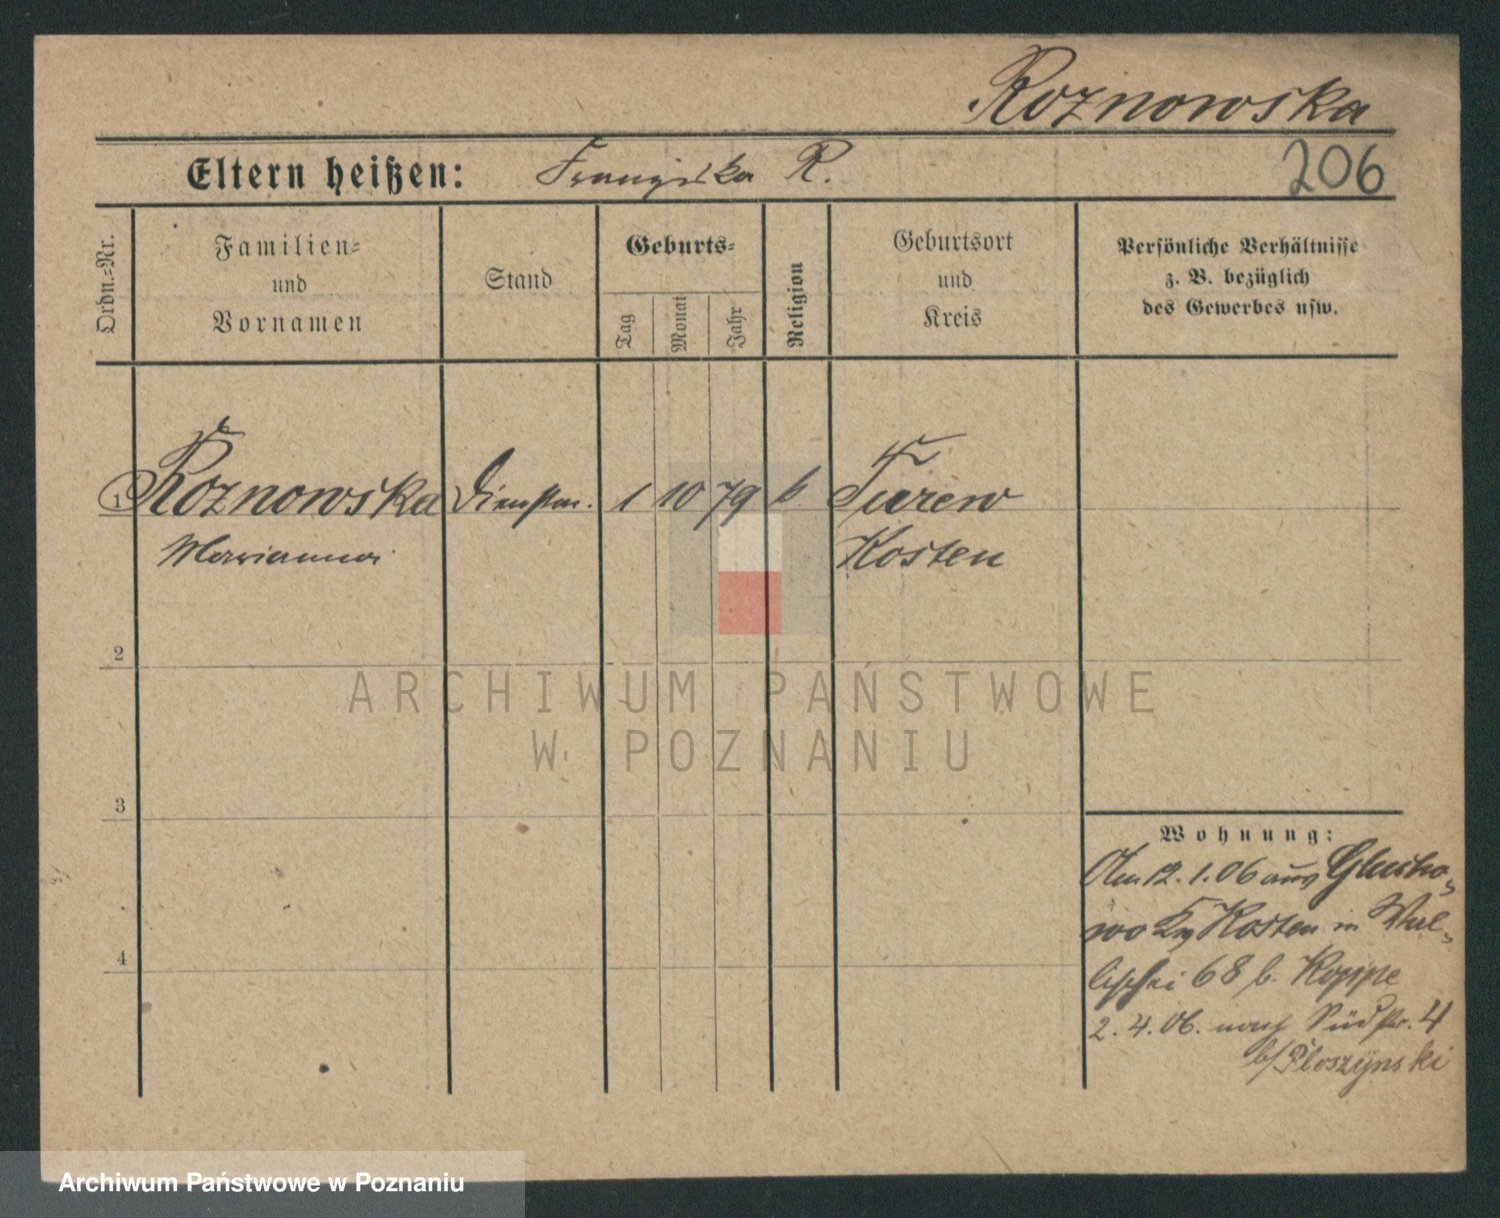 Roznowska
Eltern heißen: Franziska R.
206
Ordn.=Nr.
Familien=
und
Vornamen
Stand
Geburts=
Tag
Monat
Jahr
Religion
Geburtsort
und
Kreis
Persönliche Verhältnisse
z. B. bezüglich
des Gewerbes usw.
1 Roznowska Dienstm. 1 10 79 k Turew
Marianna Kosten
2
3
4
Wohnung:
Am 12.1.06 aus Glucho-
wo Kr Kosten in Wal-
lischei 68 b. Koppe
2.4.06. nach Südstr. 4
b/ Ploszynski
ARCHIWUM PAŃSTWOWE
W POZNANIU
Archiwum Państwowe w Poznaniu